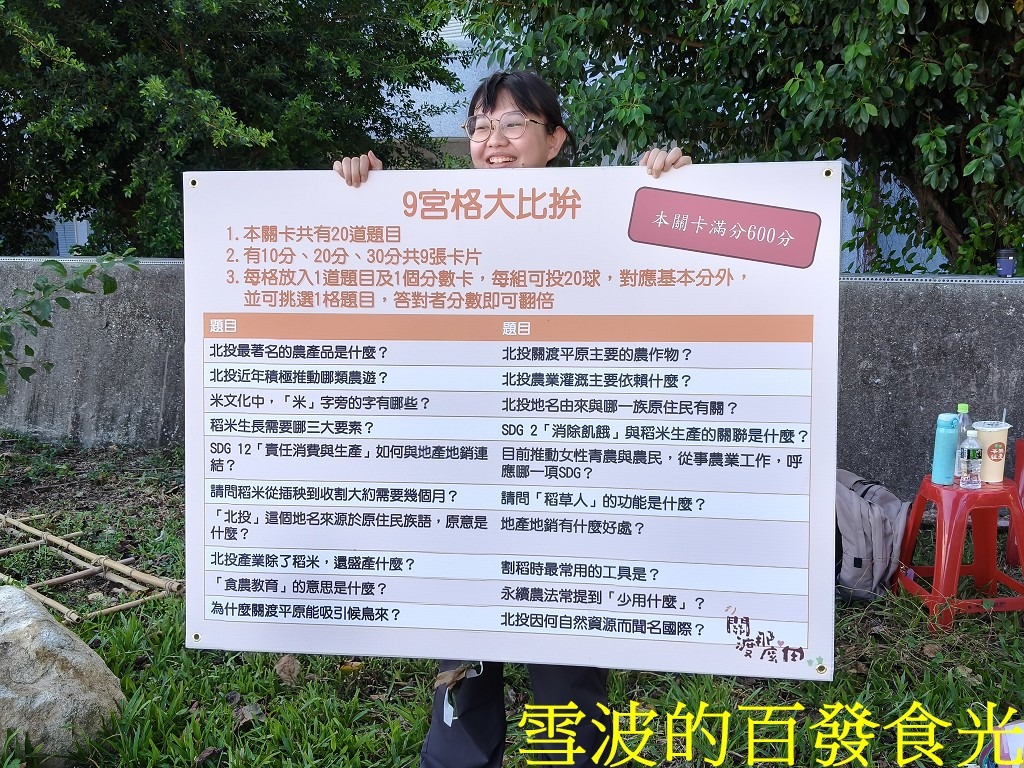 9宮格大比拚
本關卡滿分600分
1. 本關卡共有20道題目
2. 有10分、20分、30分共9張卡片
3. 每格放入1道題目及1個分數卡，每組可投20球，對應基本分外，
並可挑選1格題目，答對者分數即可翻倍
題目
題目
北投最著名的農產品是什麼？
北投關渡平原主要的農作物？
北投近年積極推動哪類農遊？
北投農業灌溉主要依賴什麼？
米文化中，「米」字旁的字有哪些？
北投地名由來與哪一族原住民有關？
稻米生長需要哪三大要素？
SDG 2「消除飢餓」與稻米生產的關聯是什麼？
SDG 12「責任消費與生產」如何與地產地銷連
結？
目前推動女性青農與農民，從事農業工作，呼
應哪一項SDG？
請問稻米從插秧到收割大約需要幾個月？
請問「稻草人」的功能是什麼？
「北投」這個地名來源於原住民族語，原意是
什麼？
地產地銷有什麼好處？
北投產業除了稻米，還盛產什麼？
割稻時最常用的工具是？
「食農教育」的意思是什麼？
永續農法常提到「少用什麼」？
為什麼關渡平原能吸引候鳥來？
北投因何自然資源而聞名國際？
關渡那麼田
雪波的百發食光